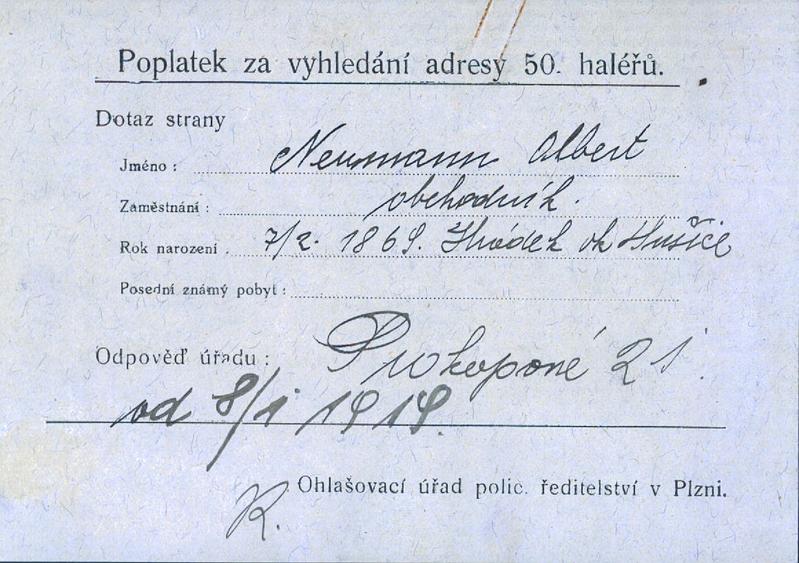 Poplatek za vyhledání adresy 50. haléřů.
Dotaz strany
Jméno : Neumann Albert
Zaměstnání : obchodník.
Rok narození . 7/2. 1869. Hrádek ok Sušice
Posední známý pobyt :
Odpověď úřadu : Prokopově 21.
od 8/1 1919.
K. Ohlašovací úřad polic. ředitelství v Plzni.